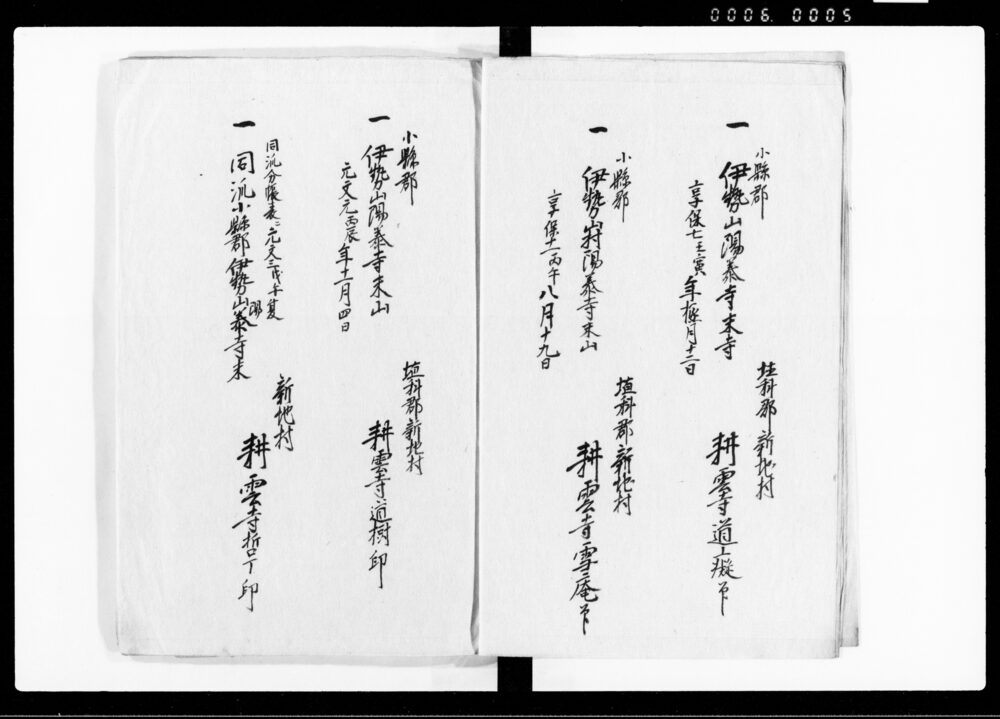 0006. 0005
一
小縣郡
伊勢山陽泰寺末寺
享保七壬寅年極月十二日
埴科郡新地村
耕雲寺道癡印
一
小縣郡
伊勢山村陽泰寺末山
享保十一丙午八月十九日
埴科郡新地村
耕雲寺雪庵印
一
小縣郡
伊勢山陽泰寺末山
元文元丙辰年十一月四日
埴科郡新地村
耕雲寺道樹印
一
同派分帳表ニ元文三戊午夏
同派小縣郡伊勢山陽泰寺末
新地村
耕雲寺哲印